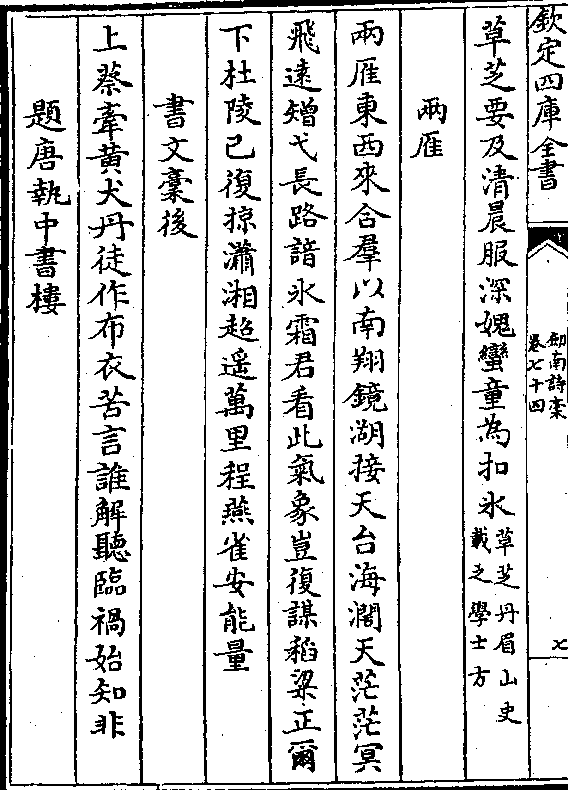 欽定四庫全書
劍南詩稾
卷七十四
七
草芝要及清晨服深媿蠻童為扣氷草芝丹眉山史
載之學士方
兩雁
兩雁東西來合羣以南翔鏡湖接天台海濶天茫茫冥
飛遠矰弋長路諳氷霜君看此氣象豈復謀稻粱正爾
下杜陵已復掠瀟湘超遥萬里程燕雀安能量
書文稾後
上蔡牽黄犬丹徒作布衣苦言誰解聽臨禍始知非
題唐執中書樓